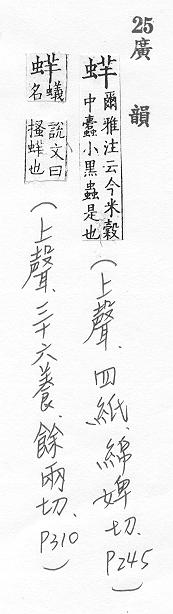 25廣韻
蛘爾雅注云今米穀
中蠹小黑蟲是也
(上聲、四紙、綿婢切、P245)
蛘蟻
名
說文曰
搔蛘也
(上聲、三十六養、餘兩切、P310)